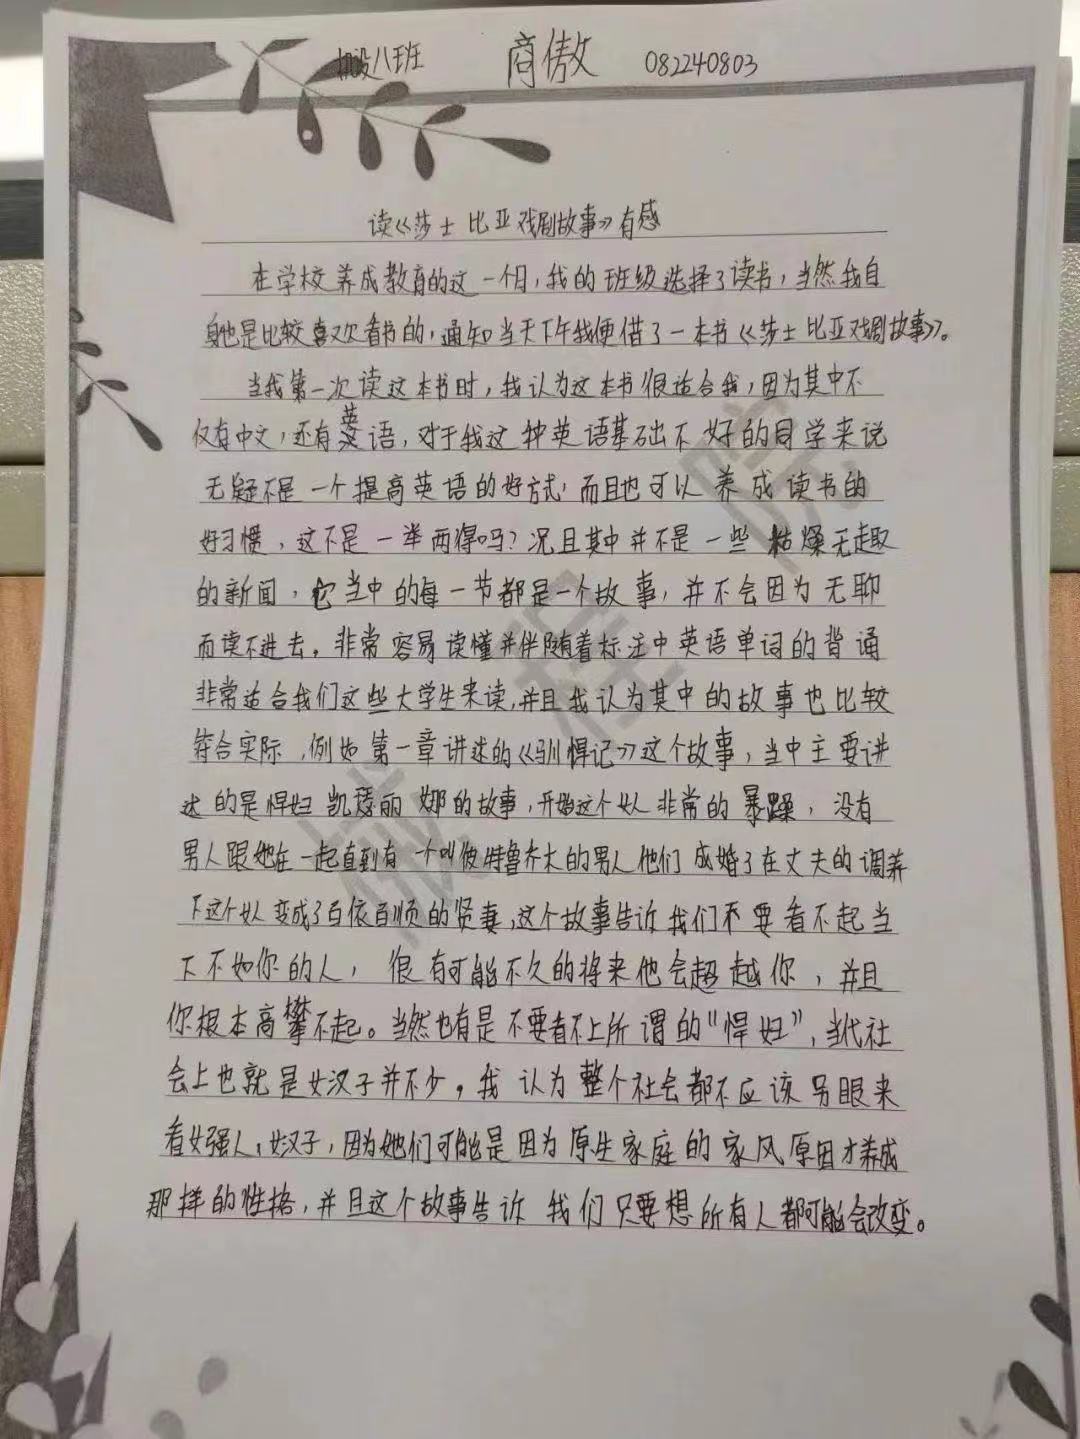 机设八班 商傲 082240803
读《莎士比亚戏剧故事》有感
在学校养成教育的这一个月，我的班级选择了读书，当然我自
身也是比较喜欢看书的，通知当天下午我便借了一本书《莎士比亚戏剧故事》。
当我第一次读这本书时，我认为这本书很适合我，因为其中不
仅有中文，还有英语，对于我这种英语基础不好的同学来说
无疑不是一个提高英语的好方式，而且也可以养成读书的
好习惯，这不是一举两得吗？况且其中并不是一些枯燥无趣
的新闻，它当中的每一节都是一个故事，并不会因为无聊
而读不进去。非常容易读懂并伴随着标注中英语单词的背诵
非常适合我们这些大学生来读，并且我认为其中的故事也比较
符合实际，例如第一章讲述的《驯悍记》这个故事，当中主要讲
述的是悍妇凯瑟丽娜的故事，开始这个女人非常的暴躁，没有
男人跟她在一起直到有一个叫彼特鲁乔太的男人他们成婚了在丈夫的调养
下这个女人变成了百依百顺的贤妻，这个故事告诉我们不要看不起当
下不如你的人，很有可能不久的将来他会超越你，并且
你根本高攀不起。当然也有是不要看不上所谓的“悍妇”，当代社
会上也就是女汉子并不少，我认为整个社会都不应该另眼来
看女强人，女汉子，因为她们可能是因为原生家庭的家风原因才养成
那样的性格，并且这个故事告诉我们只要想所有人都可能会改变。